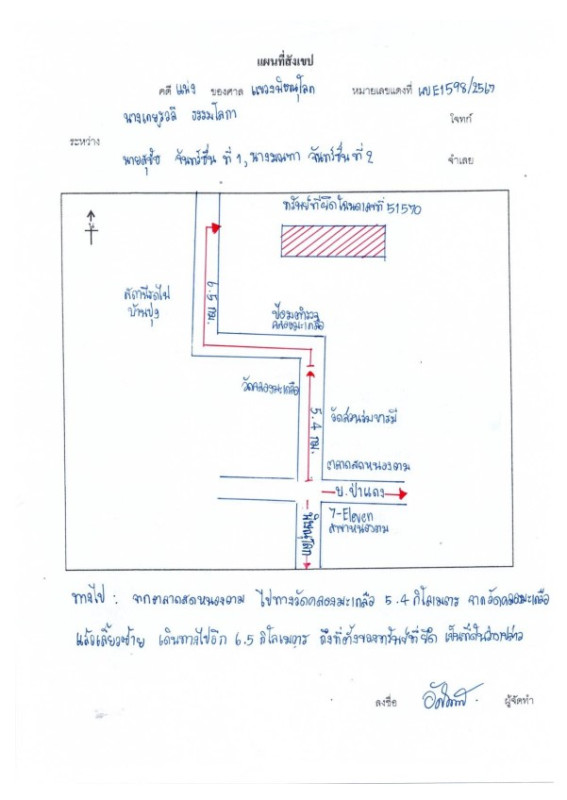 แผนที่สังเขป
คดี แพ่ง ของศาล แขวงพิษณุโลก หมายเลขแดงที่ ผบE1598/2567
นางเกษรวลี ธรรมโลกา โจทก์
ระหว่าง
นายสุชัย จันทร์ชื่น ที่ 1, นางมณฑา จันทร์ชื่น ที่ 2 จำเลย
ทรัพย์ที่ยึดโฉนดเลขที่ 51570
6.5 กม.
สถานีรถไฟ
บ้านบุ่ง
ป้อมตำรวจ
คลองมะเกลือ
วัดคลองมะเกลือ
5.4 กม.
วัดสวนร่มบารมี
ตลาดสดหนองตม
บ.ป่าแดง
7-Eleven
สาขาหนองตม
พิษณุโลก
ทางไป : จากตลาดสดหนองตม ไปทางวัดคลองมะเกลือ 5.4 กิโลเมตร จากวัดคลองมะเกลือ
แล้วเลี้ยวซ้าย เดินทางไปอีก 6.5 กิโลเมตร ถึงที่ตั้งของทรัพย์ที่ยึด เป็นที่ดินว่างเปล่า
ลงชื่อ ผู้จัดทำ